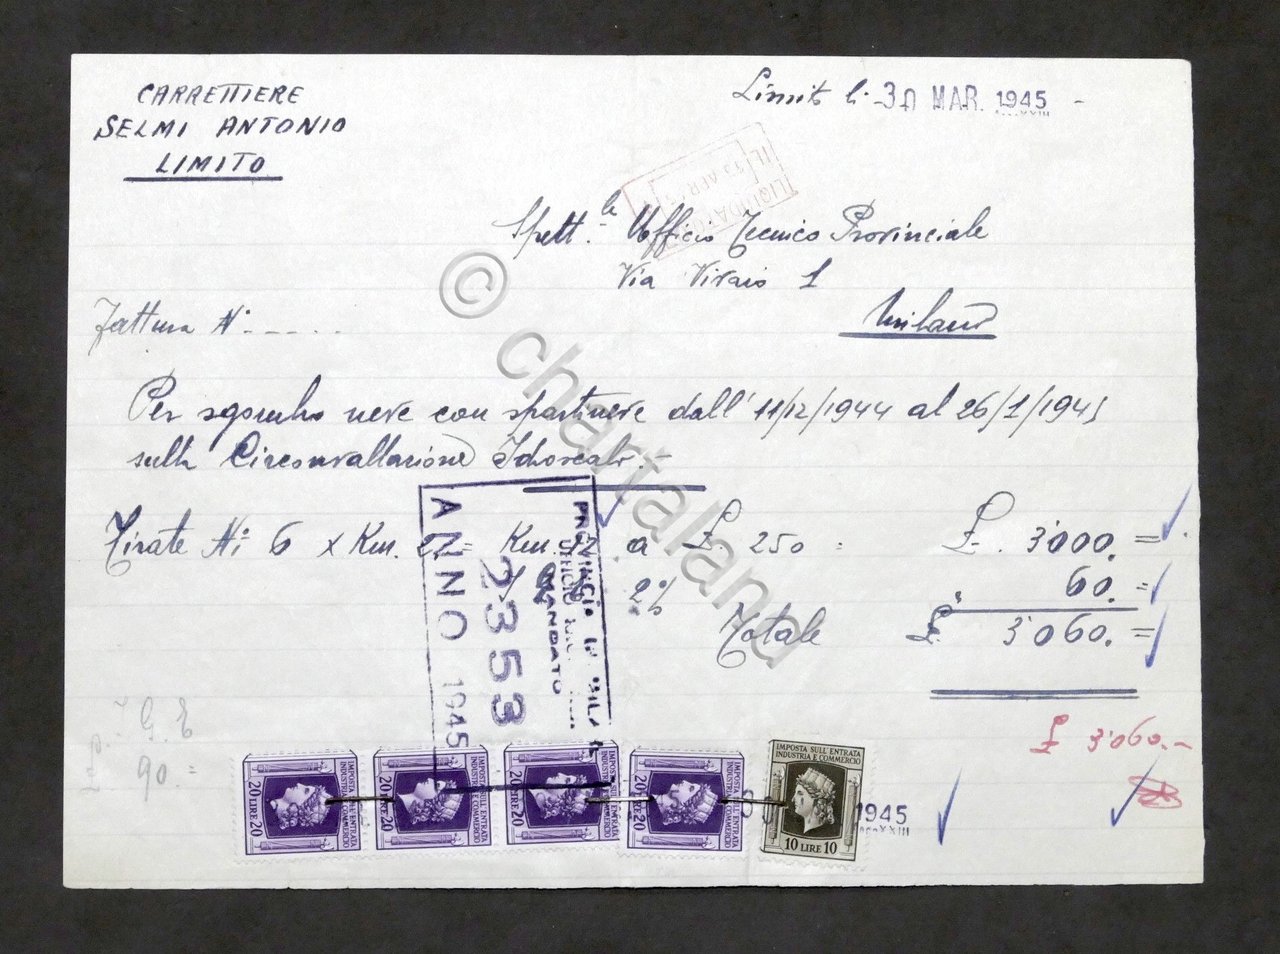 CARRETTIERE
SELMI ANTONIO
LIMITO
Limito li 30 MAR. 1945 -
Anno XXIII
LIQUIDATO
IL 13 APR
Spett.le Ufficio Tecnico Provinciale
Via Vivaio 1
Milano
Fattura N° - - - - -
Per sgombro neve con spartineve dall' 11/12/1944 al 26/1/1945
sulla Circonvallazione Idroscalo.-
Tirate N° 6 x Km. = Km. a £. 250 = £. 3'000. =
2% 60. =
Totale £ 3'060. =
PROVINCIA DI MILANO
UFFICIO
MANDATO
23353
ANNO 1945
I.G.E
90.=
£ 3'060.-
IMPOSTA SULL'ENTRATA
INDUSTRIA E COMMERCIO
20 LIRE 20
IMPOSTA SULL'ENTRATA
INDUSTRIA E COMMERCIO
20 LIRE 20
IMPOSTA SULL'ENTRATA
INDUSTRIA E COMMERCIO
20 LIRE 20
IMPOSTA SULL'ENTRATA
INDUSTRIA E COMMERCIO
20 LIRE 20
IMPOSTA SULL'ENTRATA
INDUSTRIA E COMMERCIO
10 LIRE 10
1945
Anno XXIII
© chartaland